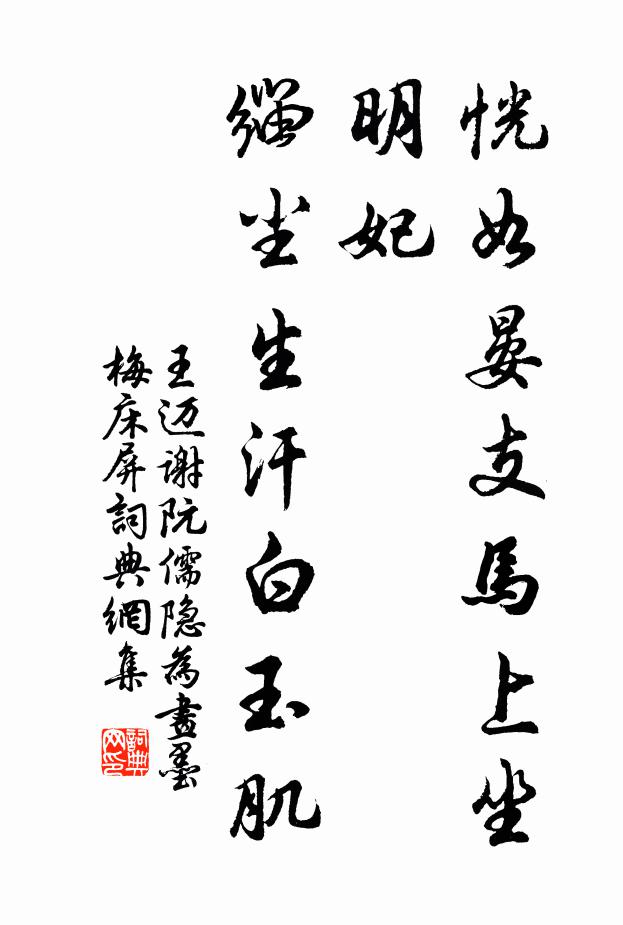 恍如晏支馬上坐
明妃
缁尘生汗白玉肌
王迈谢阮儒隐為畫墨
梅床屏詞典網集
詞典
网印